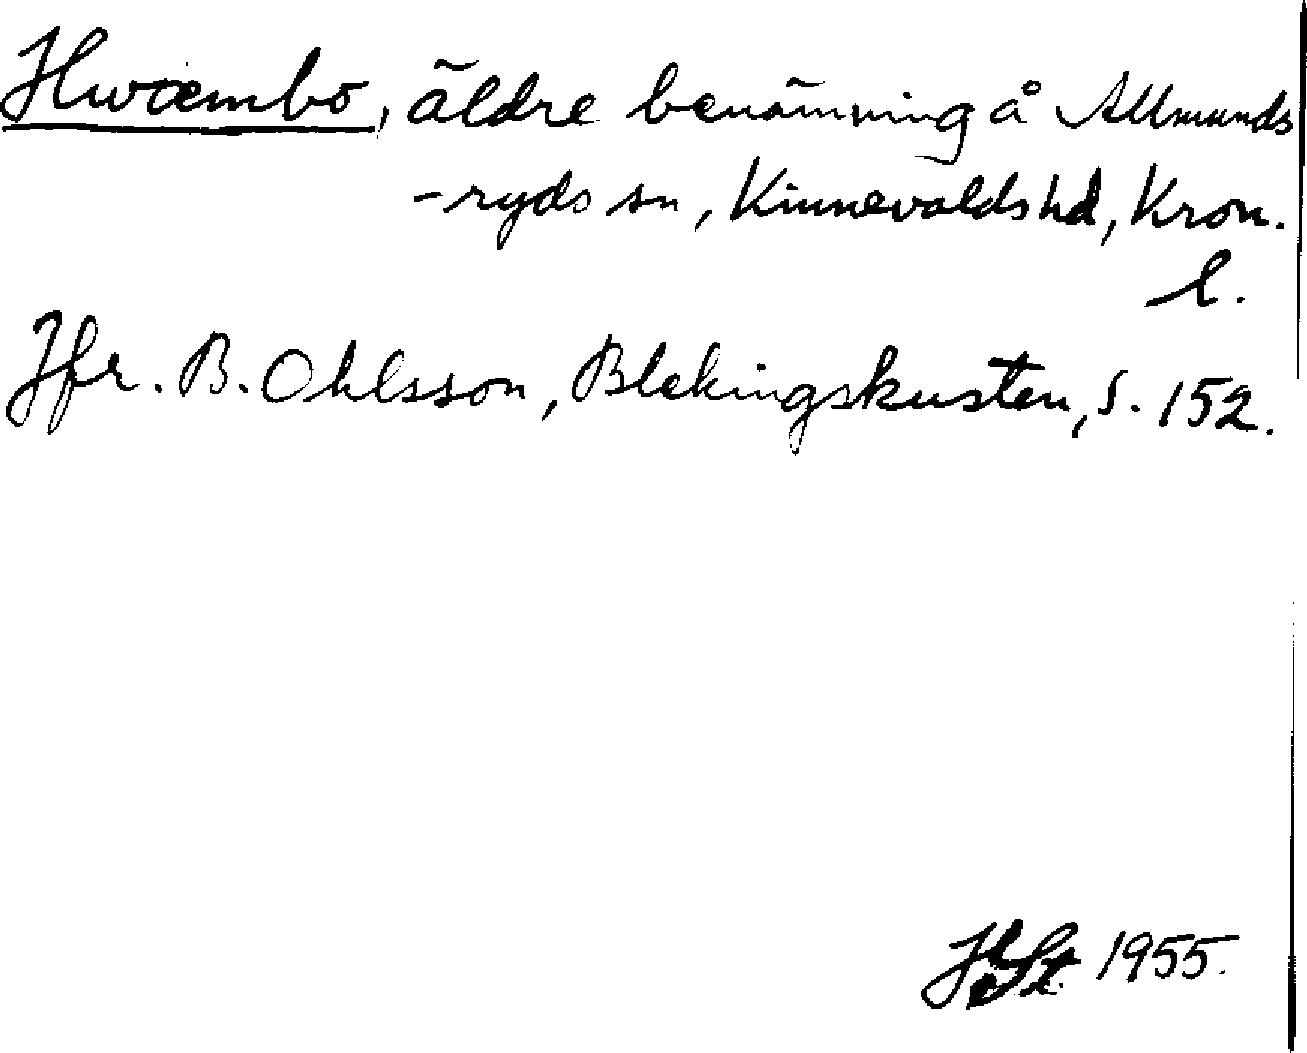 Hwæmbo, äldre benämning å Allmunds
-ryds sn, Kinnevalds hd, Kron.
l.
Jfr. B. Ohlsson, Blekingskusten, s. 152.
H.St. 1955.